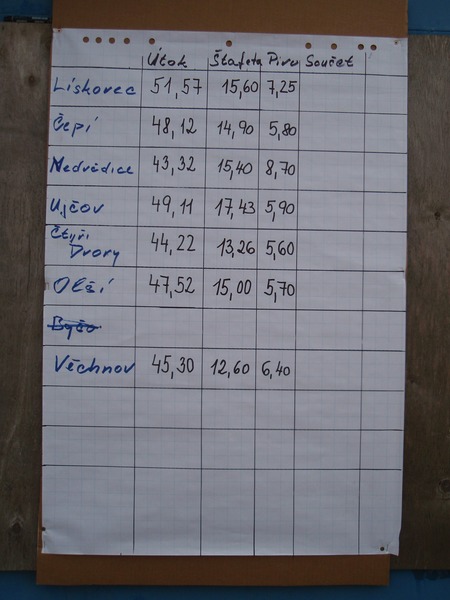 Útok Štafeta Pivo Součet
Lískovec 51,57 15,60 7,25
Čepí 48,12 14,90 5,80
Nedvědice 43,32 15,40 8,70
Ujčov 49,11 17,43 5,90
Čtyři
Dvory 44,22 13,26 5,60
Olší 47,52 15,00 5,70
Věchnov 45,30 12,60 6,40